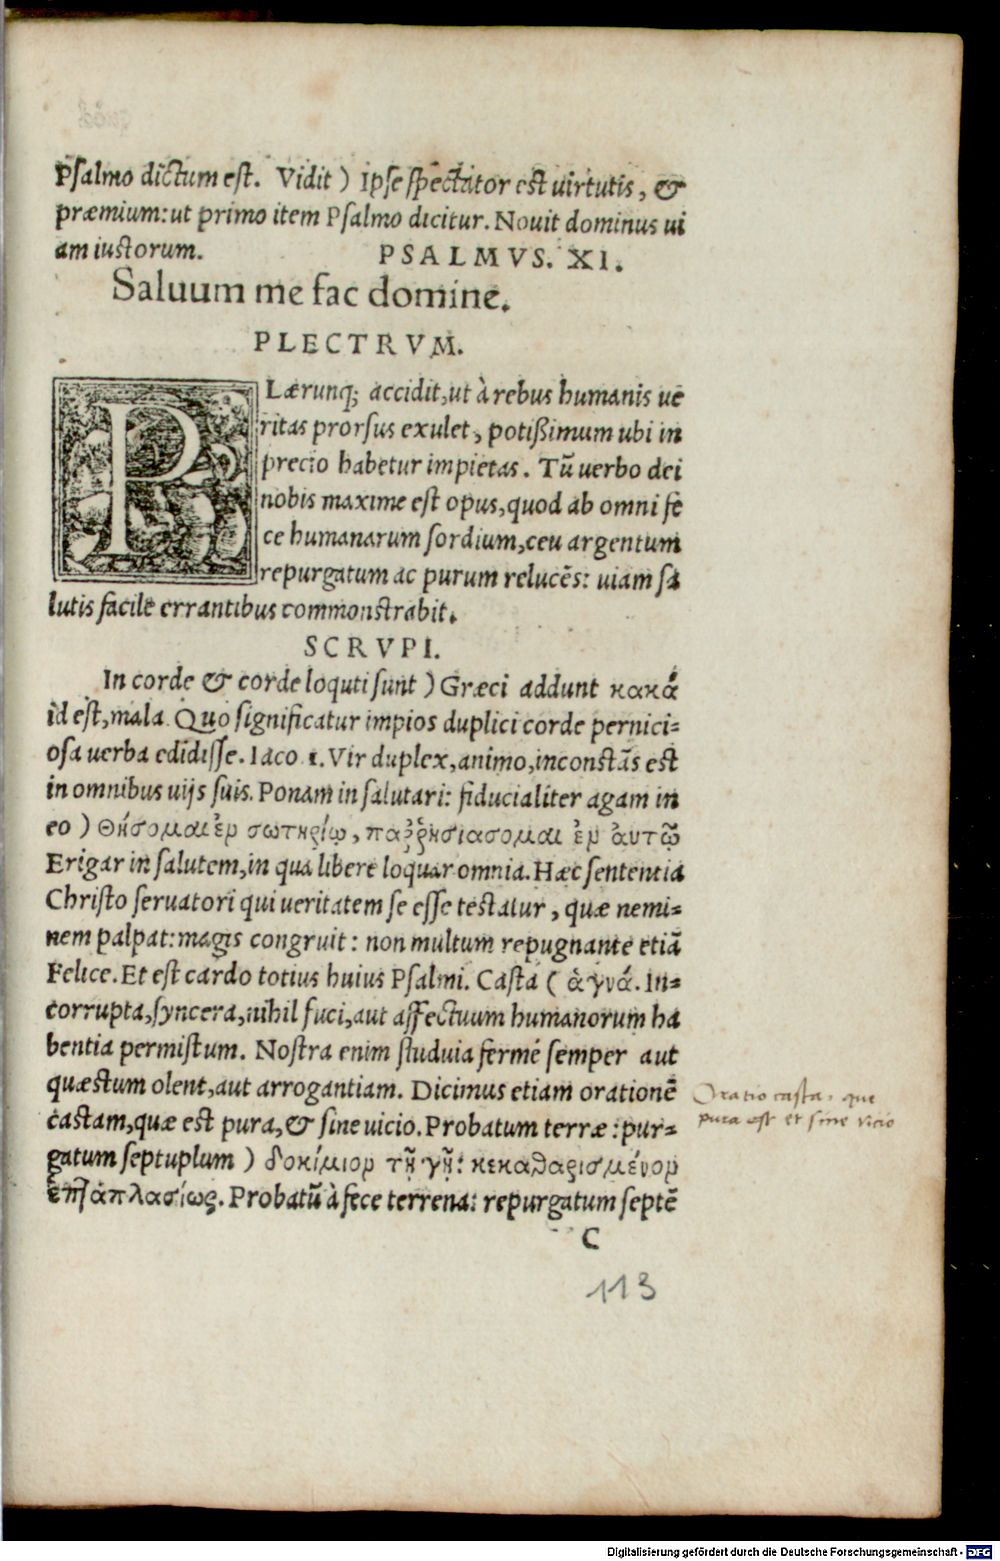 Psalmo dictum est. Vidit ) Ipse spectator est uirtutis, &
præmium: ut primo item Psalmo dicitur. Nouit dominus ui
am iustorum. PSALMVS. XI.
Saluum me fac domine.
PLECTRVM.
PLærunq; accidit, ut à rebus humanis ue
ritas prorsus exulet, potißimum ubi in
precio habetur impietas. Tũ uerbo dei
nobis maxime est opus, quod ab omni fe
ce humanarum sordium, ceu argentum
repurgatum ac purum relucẽs: uiam sa
lutis facile errantibus commonstrabit.
SCRVPI.
In corde & corde loquti sunt ) Græci addunt κακά
id est, mala. Quo significatur impios duplici corde pernici=
osa uerba edidisse. Iaco 1. Vir duplex, animo, inconstãs est
in omnibus uijs suis. Ponam in salutari: fiducialiter agam in
eo ) θήσομαι ἐν σωτηρίῳ, παῤῥησιασομαι ἐν ἀυτῷ
Erigar in salutem, in qua libere loquar omnia. Hæc sententia
Christo seruatori qui ueritatem se esse testatur, quæ nemi=
nem palpat: magis congruit: non multum repugnante etiã
Felice. Et est cardo totius huius Psalmi. Casta ( ἁγνά. In=
corrupta, syncera, nihil fuci, aut affectuum humanorum ha
bentia permistum. Nostra enim studuia fermé semper aut
quæstum olent, aut arrogantiam. Dicimus etiam orationẽ
castam, quæ est pura, & sine uicio. Probatum terræ: pur=
gatum septuplum ) δοκίμιον τῇ γῇ: κεκαθαρισμένον
ἑπταπλασίως. Probatũ à fece terrena: repurgatum septẽ
C
113
Oratio casta, que
pura est et sine vicio
Digitalisierung gefördert durch die Deutsche Forschungsgemeinschaft - DFG